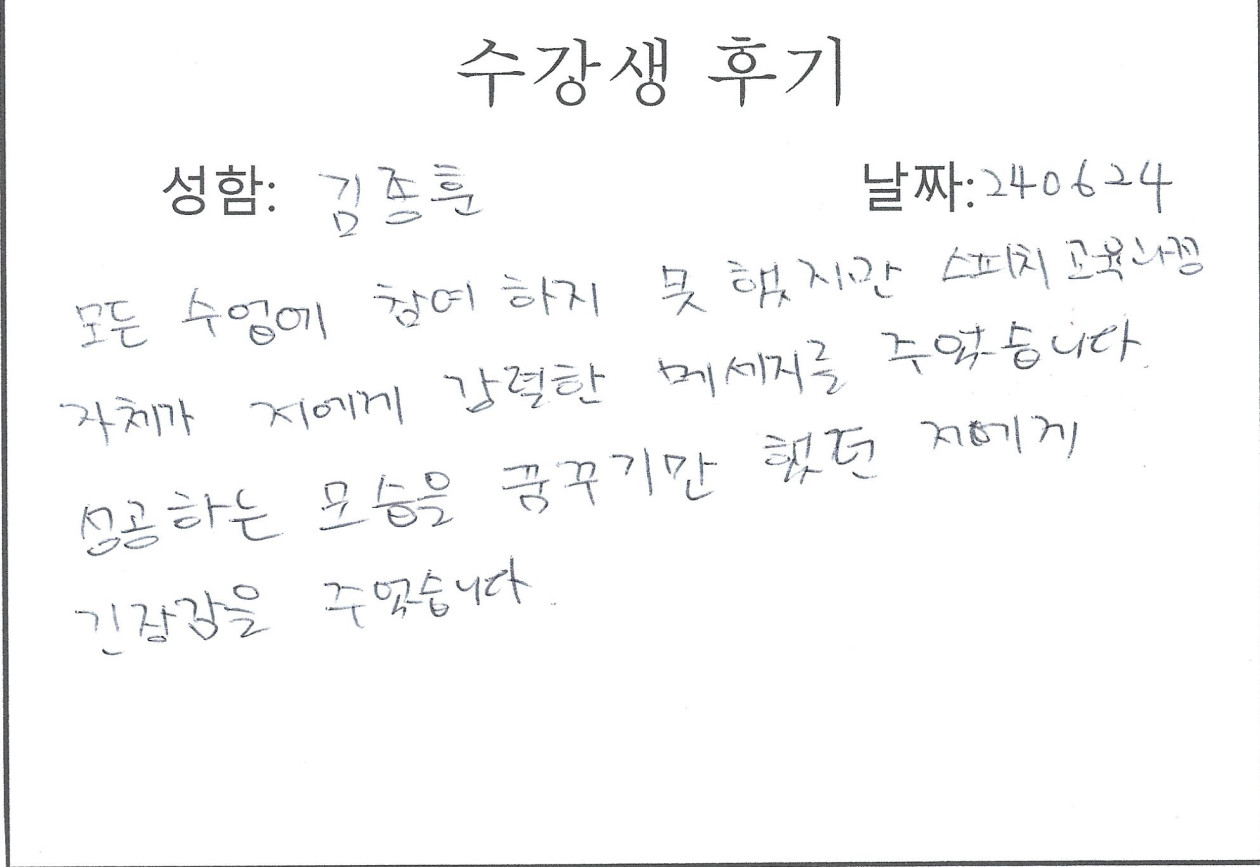 수강생 후기
성함: 김종훈 날짜: 240624
모든 수업에 참여 하지 못 했지만 스피치 교육나눔
자체가 저에게 강렬한 메세지를 주었습니다.
성공하는 모습을 꿈꾸기만 했던 저에게
긴장감을 주었습니다.